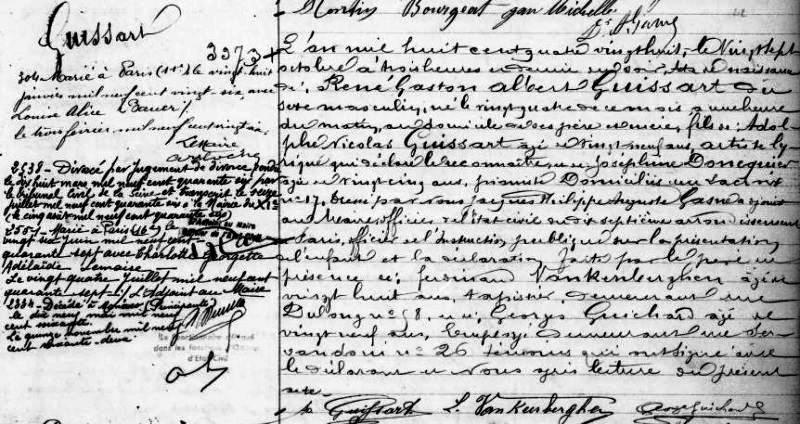 Montin Bourgeot
Guissart
3373
304 Marié à Paris (11e) le vingt huit
janvier mil neuf cent vingt six avec
Louise Alice
le trois février mil neuf cent vingt six
2538 - Divorcé par Jugement de divorce
le dix huit mars mil neuf cent quarante six par
le Tribunal Civil de la Seine et transcrit le seize
juillet mil neuf cent quarante six à la Mairie du XIe
le cinq août mil neuf cent quarante six
Marié à Paris le
vingt six juin mil neuf cent
quarante sept avec Charlotte Georgette
Adélaïde Lemaire
Le vingt quatre Juillet mil neuf cent
quarante sept L'Adjoint au Maire
Décédé à
le dix neuf mil neuf
cent soixante
Le quinze novembre mil neuf
cent soixante deux
L'an mil huit cent quatre vingt huit, le Vingt sept
octobre à trois heures et demie du soir, Acte de naissance
de René Gaston Albert Guissart du
sexe masculin, né le vingt quatre de ce mois à une heure
du matin, au domicile de ses père et mère, fils de Adol-
phe Nicolas Guissart âgé de Vingt neuf ans, artiste ly-
rique qui déclare le reconnaître, et de Joséphine
âgée de Vingt cinq ans, Domiciliés rue
n° 17, Dressé par nous Jacques Philippe Auguste adjoint
au Maire, officier de l'état civil du dix septième arrondissement
de Paris, officier de l'Instruction publique sur la présentation
de l'enfant et la déclaration faite par le père en
présence de Fernand Vankenberghen âgé de
vingt huit ans, tapissier demeurant rue
Dulong n° 58, et de Georges Guichard âgé de
vingt neuf ans, Employé demeurant rue Ser-
vandoni n° 26 témoins qui ont signé avec
le déclarant et Nous après lecture du présent
acte.
Guissart L. Vankenberghen Georges Guichard